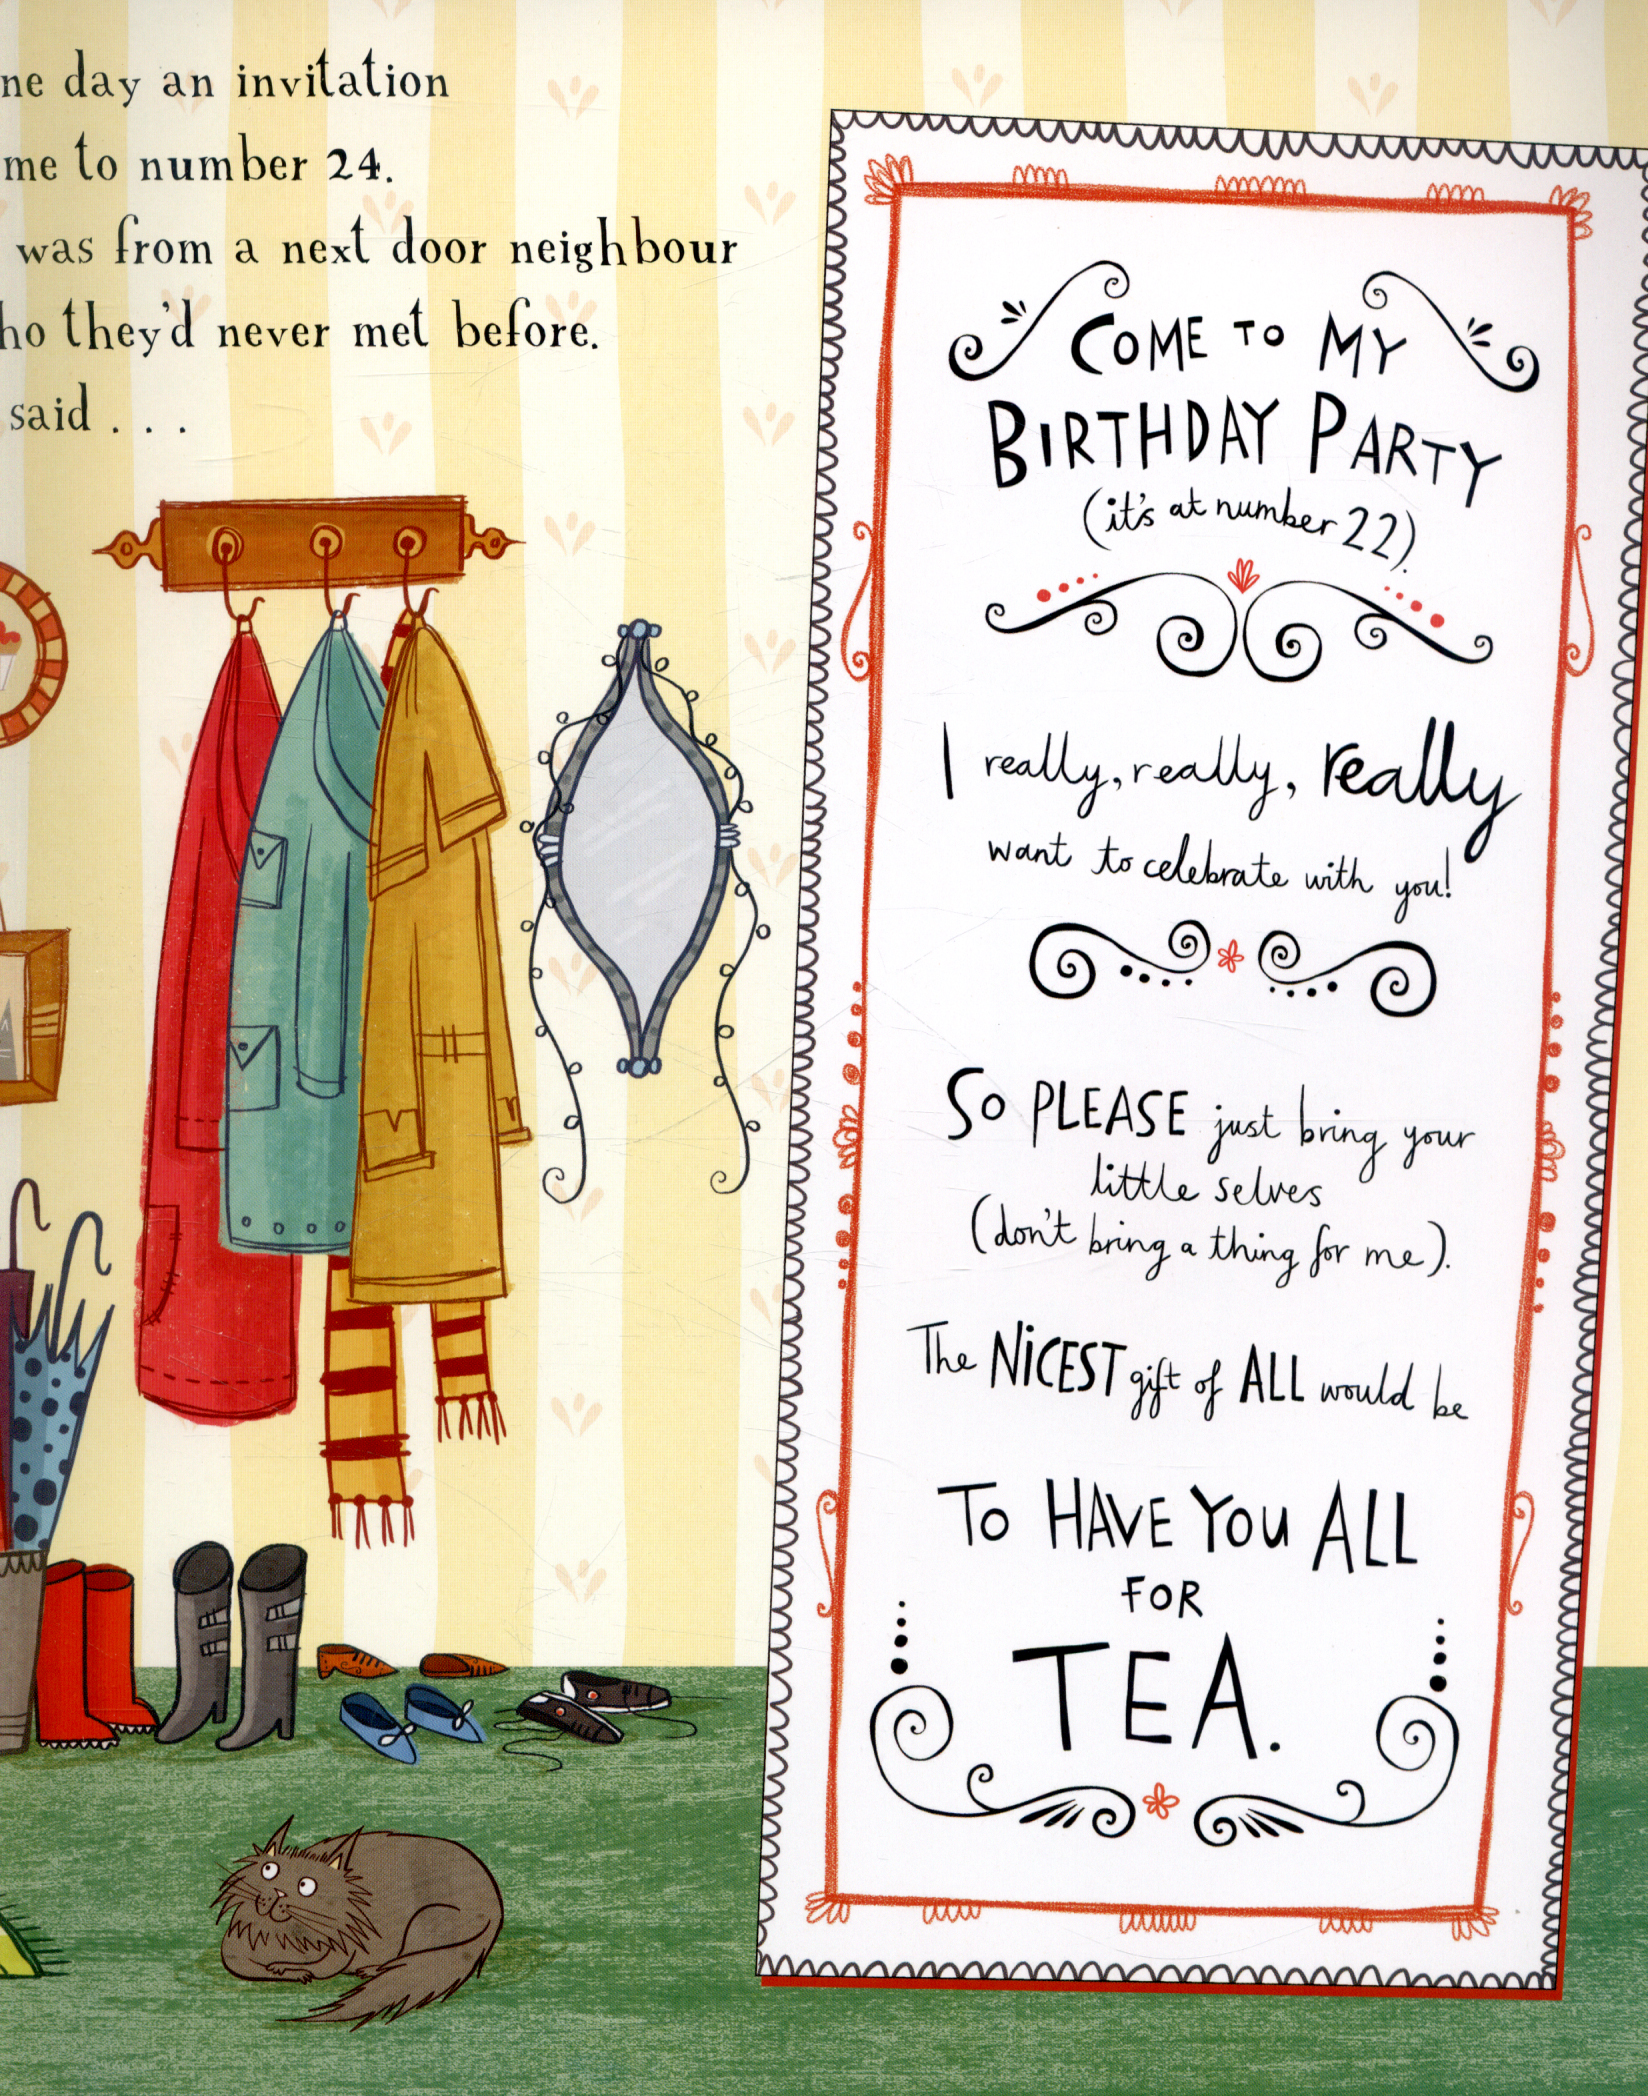 ne day an invitation
me to number 24.
was from a next door neighbour
ho they'd never met before.
said . . .
COME TO MY
BIRTHDAY PARTY
(it's at number 22).
I really, really, really
want to celebrate with you!
SO PLEASE just bring your
little selves
(don't bring a thing for me).
The NICEST gift of ALL would be
TO HAVE YOU ALL
FOR
TEA.